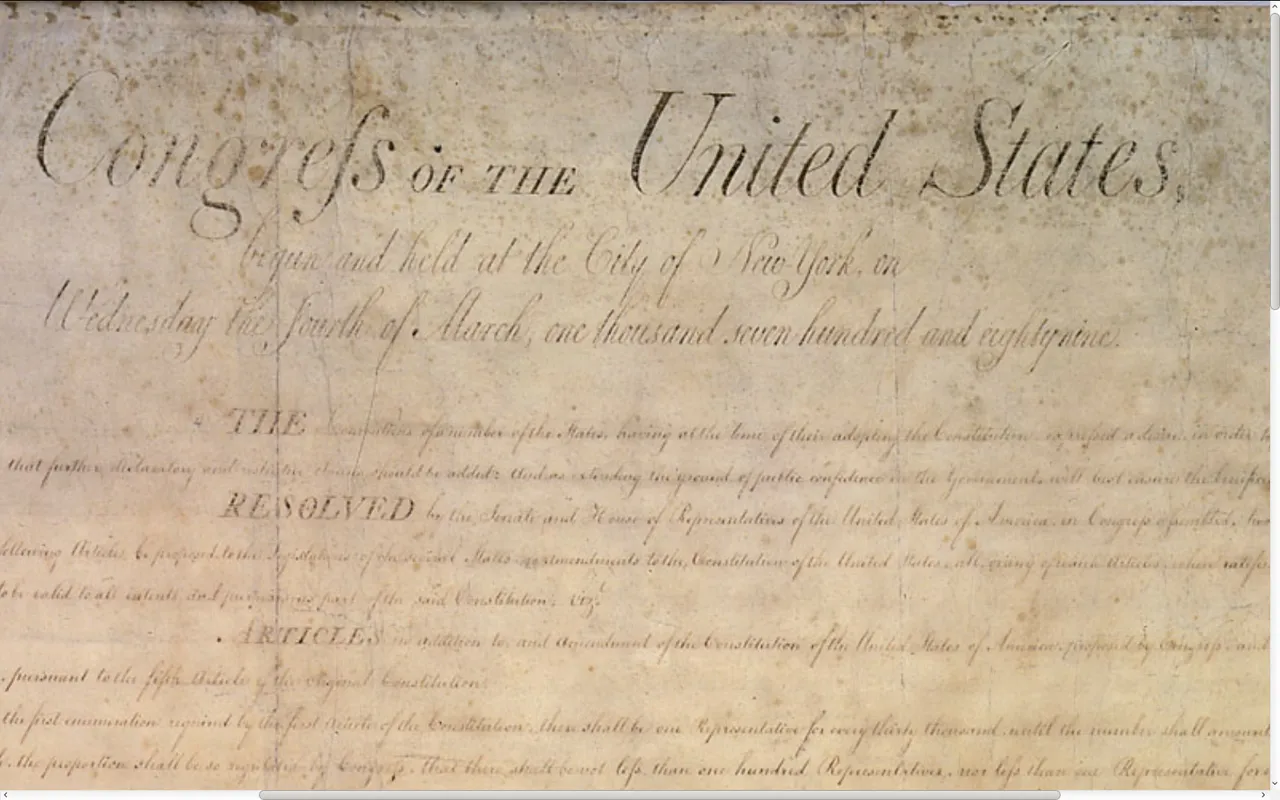 Congreſs OF THE United States,
begun and held at the City of New York, on
Wednesday the fourth of March, one thousand seven hundred and eighty nine.
THE Conventions of a number of the States, having at the time of their adopting the Constitution, expreſsed a desire, in order to
that further declaratory and restrictive clauses should be added: And as extending the ground of public confidence in the Government, will best ensure the
RESOLVED by the Senate and House of Representatives of the United States of America, in Congreſs aſsembled, two
following Articles be proposed to the Legislatures of the several States, as amendments to the Constitution of the United States, all, or any of which Articles, when ratified
to be valid to all intents and purposes, as part of the said Constitution; vizt.
ARTICLES in addition to, and Amendment of the Constitution of the United States of America, proposed by Congreſs, and
, pursuant to the fifth Article of the original Constitution.
the first enumeration required by the first Article of the Constitution, there shall be one Representative for every thirty thousand, until the number shall amount
the proportion shall be so regulated by Congreſs, that there shall be not leſs than one hundred Representatives, nor leſs than one Representative for